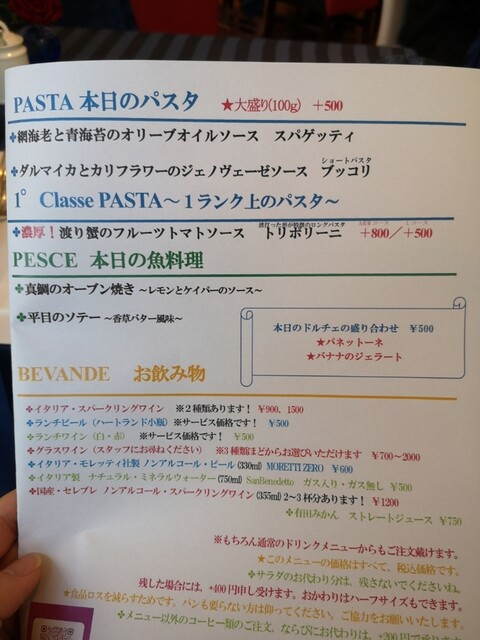 PASTA 本日のパスタ ★大盛り(100g) +500
❖網海老と青海苔のオリーブオイルソース スパゲッティ
ショートパスタ
❖ダルマイカとカリフラワーのジェノヴェーゼソース ブッコリ
1° Classe PASTA～1ランク上のパスタ～
❖濃厚！渡り蟹のフルーツトマトソース トリポリーニ +800／+500
PESCE 本日の魚料理
❖真鯛のオーブン焼き ～レモンとケイパーのソース～
❖平目のソテー ～香草バター風味～
本日のドルチェの盛り合わせ ¥500
★パネットーネ
★バナナのジェラート
BEVANDE お飲み物
❖イタリア・スパークリングワイン ※2種類あります！ ¥900, 1500
❖ランチビール（ハートランド小瓶）※サービス価格です！ ¥500
❖ランチワイン（白・赤） ※サービス価格です！ ¥500
❖グラスワイン（スタッフにお尋ねください） ※3種類ほどからお選びいただけます ¥700~2000
❖イタリア・モレッティ社製 ノンアルコール・ビール(330ml) MORETTI ZERO ¥600
❖イタリア製 ナチュラル・ミネラルウォーター(750ml) SanBenedetto ガス入り・ガス無し ¥500
❖国産・セレブレ ノンアルコール・スパークリングワイン(355ml) 2～3杯分あります！ ¥1200
❖有田みかん ストレートジュース ¥750
※もちろん通常のドリンクメニューからもご注文戴けます。
★このメニューの価格はすべて、税込価格です。
❖サラダのお代わり分は、残さないでくださいね。
残した場合には、+400円申し受けます。おかわりはハーフサイズもできます。
★食品ロスを減らすためです。パンも要らない方は仰ってください。ご協力をお願いいたします。
❖メニュー以外のコーヒー類のご注文、ならびにお代わりは、+200